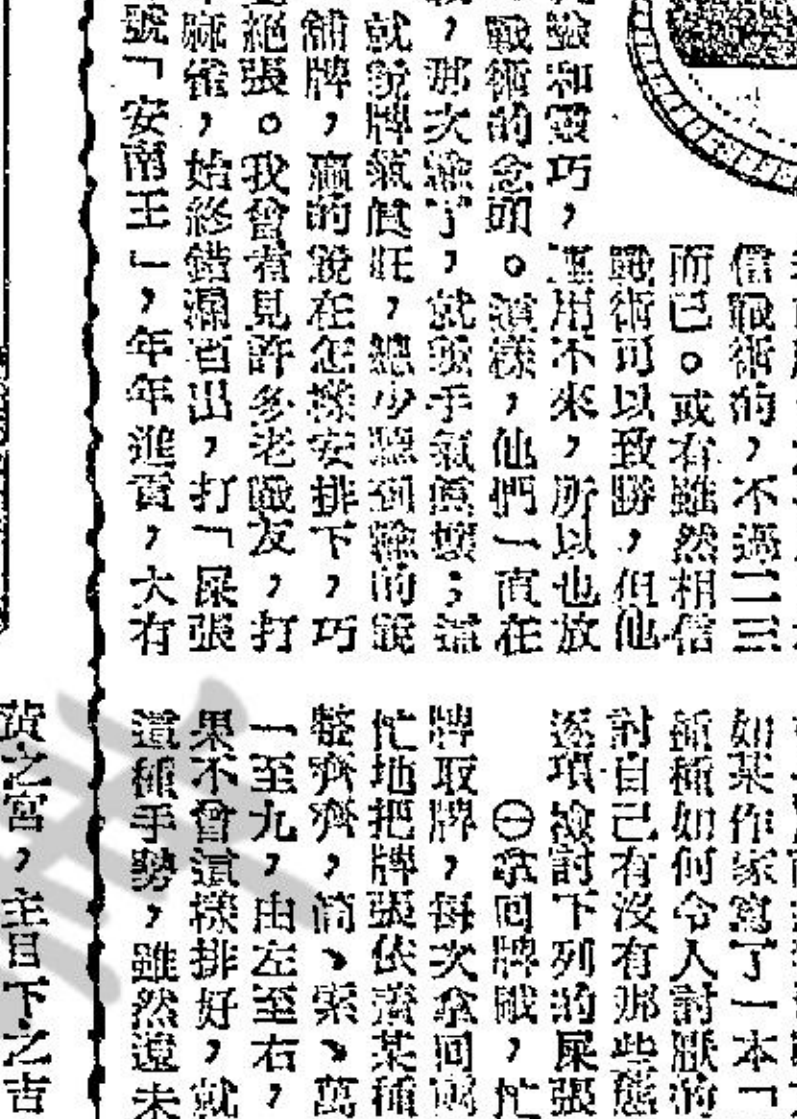 信戰術的，不過二三
而已。或有雖然相信
戰術可以致勝，但他
和靈巧，運用不來，所以也放
戰術的念頭。這樣，他們一直在
，那次輸了，就說手氣眞壞；這
就說牌氣眞旺，絕少聽到輸的說
舖牌，贏的說在怎樣安排下，巧
絕張。我曾看見許多老戰友，打
麻雀，始終錯漏百出，打「屎張
號「安南王」，年年進貢，大有
如某作家寫了一本「
種種如何令人討厭的
討自己有沒有那些態
逐項檢討下列的屎張
㊀拿回牌戲，忙
牌取牌，每次拿回兩
忙地把牌張依着某種
整齊齊，筒、索、萬
一至九，由左至右，
果不曾這樣排好，就
這種手勢，雖然還未
黃之宮，主目下之吉